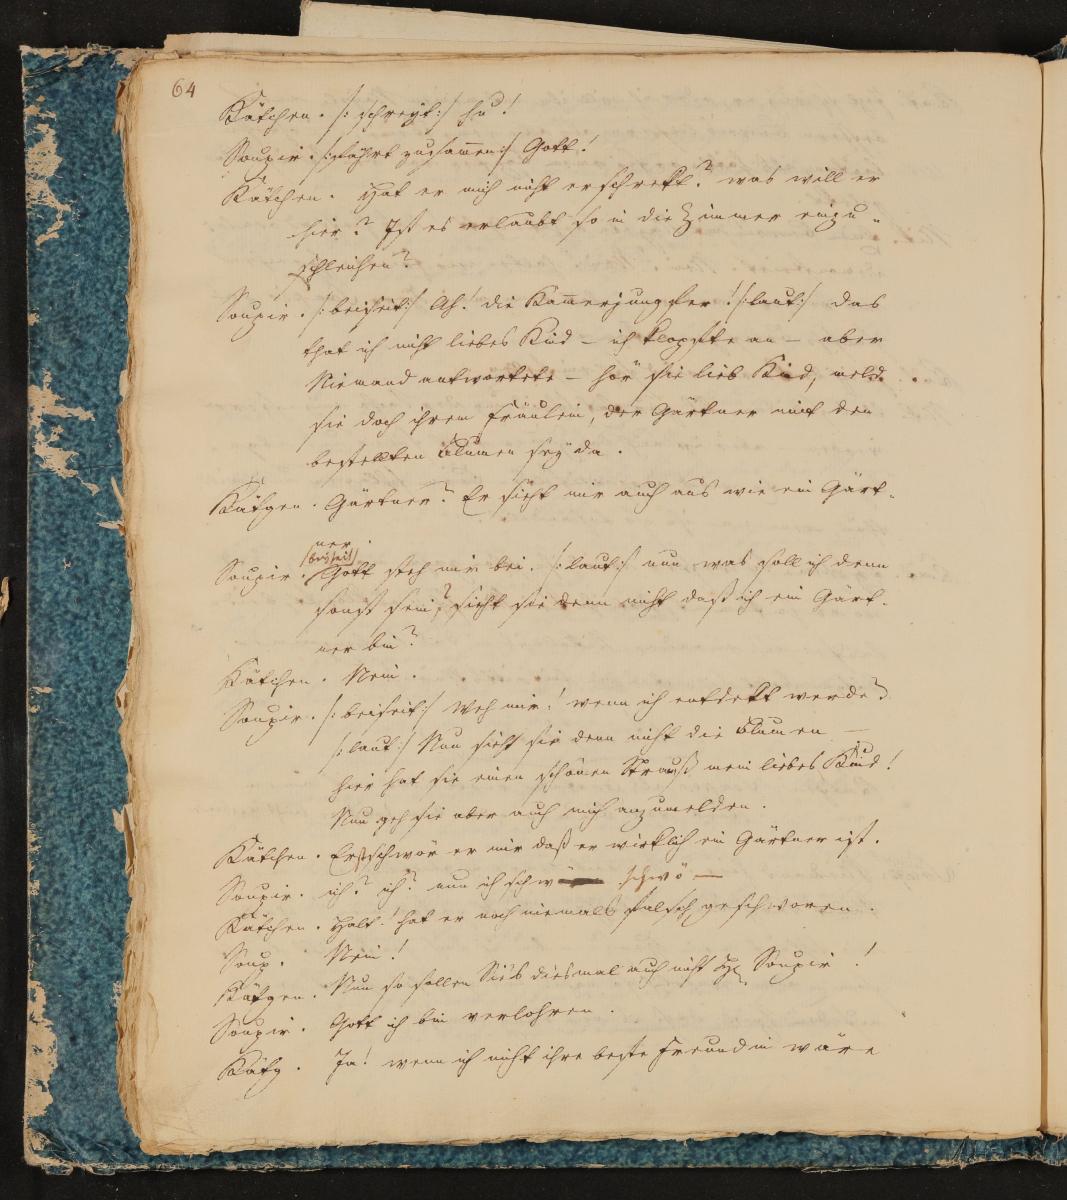 64
Kätchen. /: schreyt :/ hu!
Soupir. /: fährt zusam̄en :/ Gott!
Kätchen. Hat er mich nicht erschrekt? was will er
hier? Ist es erlaubt so in die Zimmer einzu-
schleichen?
Soupir. /: beiseit :/ Ah! die Kam̄erjungfer! /: laut :/ das
that ich nicht liebes Kind – ich klopfte an – aber
Niemand antwortete – hör sie lieb Kind, meld
sie doch ihrem Fräulein, der Gärtner mit den
bestellten Blumen sey da.
Kätgen. Gärtner? Er sieht mir auch aus wie ein Gärt-
ner.
/beyseit/
Soupir. Gott steh mir bei. /: laut :/ nun, was soll ich denn
sonst sein? sieht sie denn nicht daß ich ein Gärt-
ner bin?
Kätchen. Nein.
Soupir. /: beiseit :/ Weh mir! wenn ich entdekt werde?
/: laut :/ Nun sieht sie denn nicht die Blumen –
hier hat sie einen schönen Strauß mein liebes Kind!
Nun geh sie aber auch mich anzumelden.
Kätchen. Erst schwör er mir daß er wirklich ein Gärtner ist.
Soupir. ich? ich? nun ich schwö schwö –
Kätchen. Halt! hat er noch niemals falsch geschworen.
Soup. Nein!
Kätgen. Nun so sollen Sie's diesmal auch nicht H. Soupir!
Soupir. Gott ich bin verlohren.
Kätg. Ja! wenn ich nicht ihre beste Freundin wäre